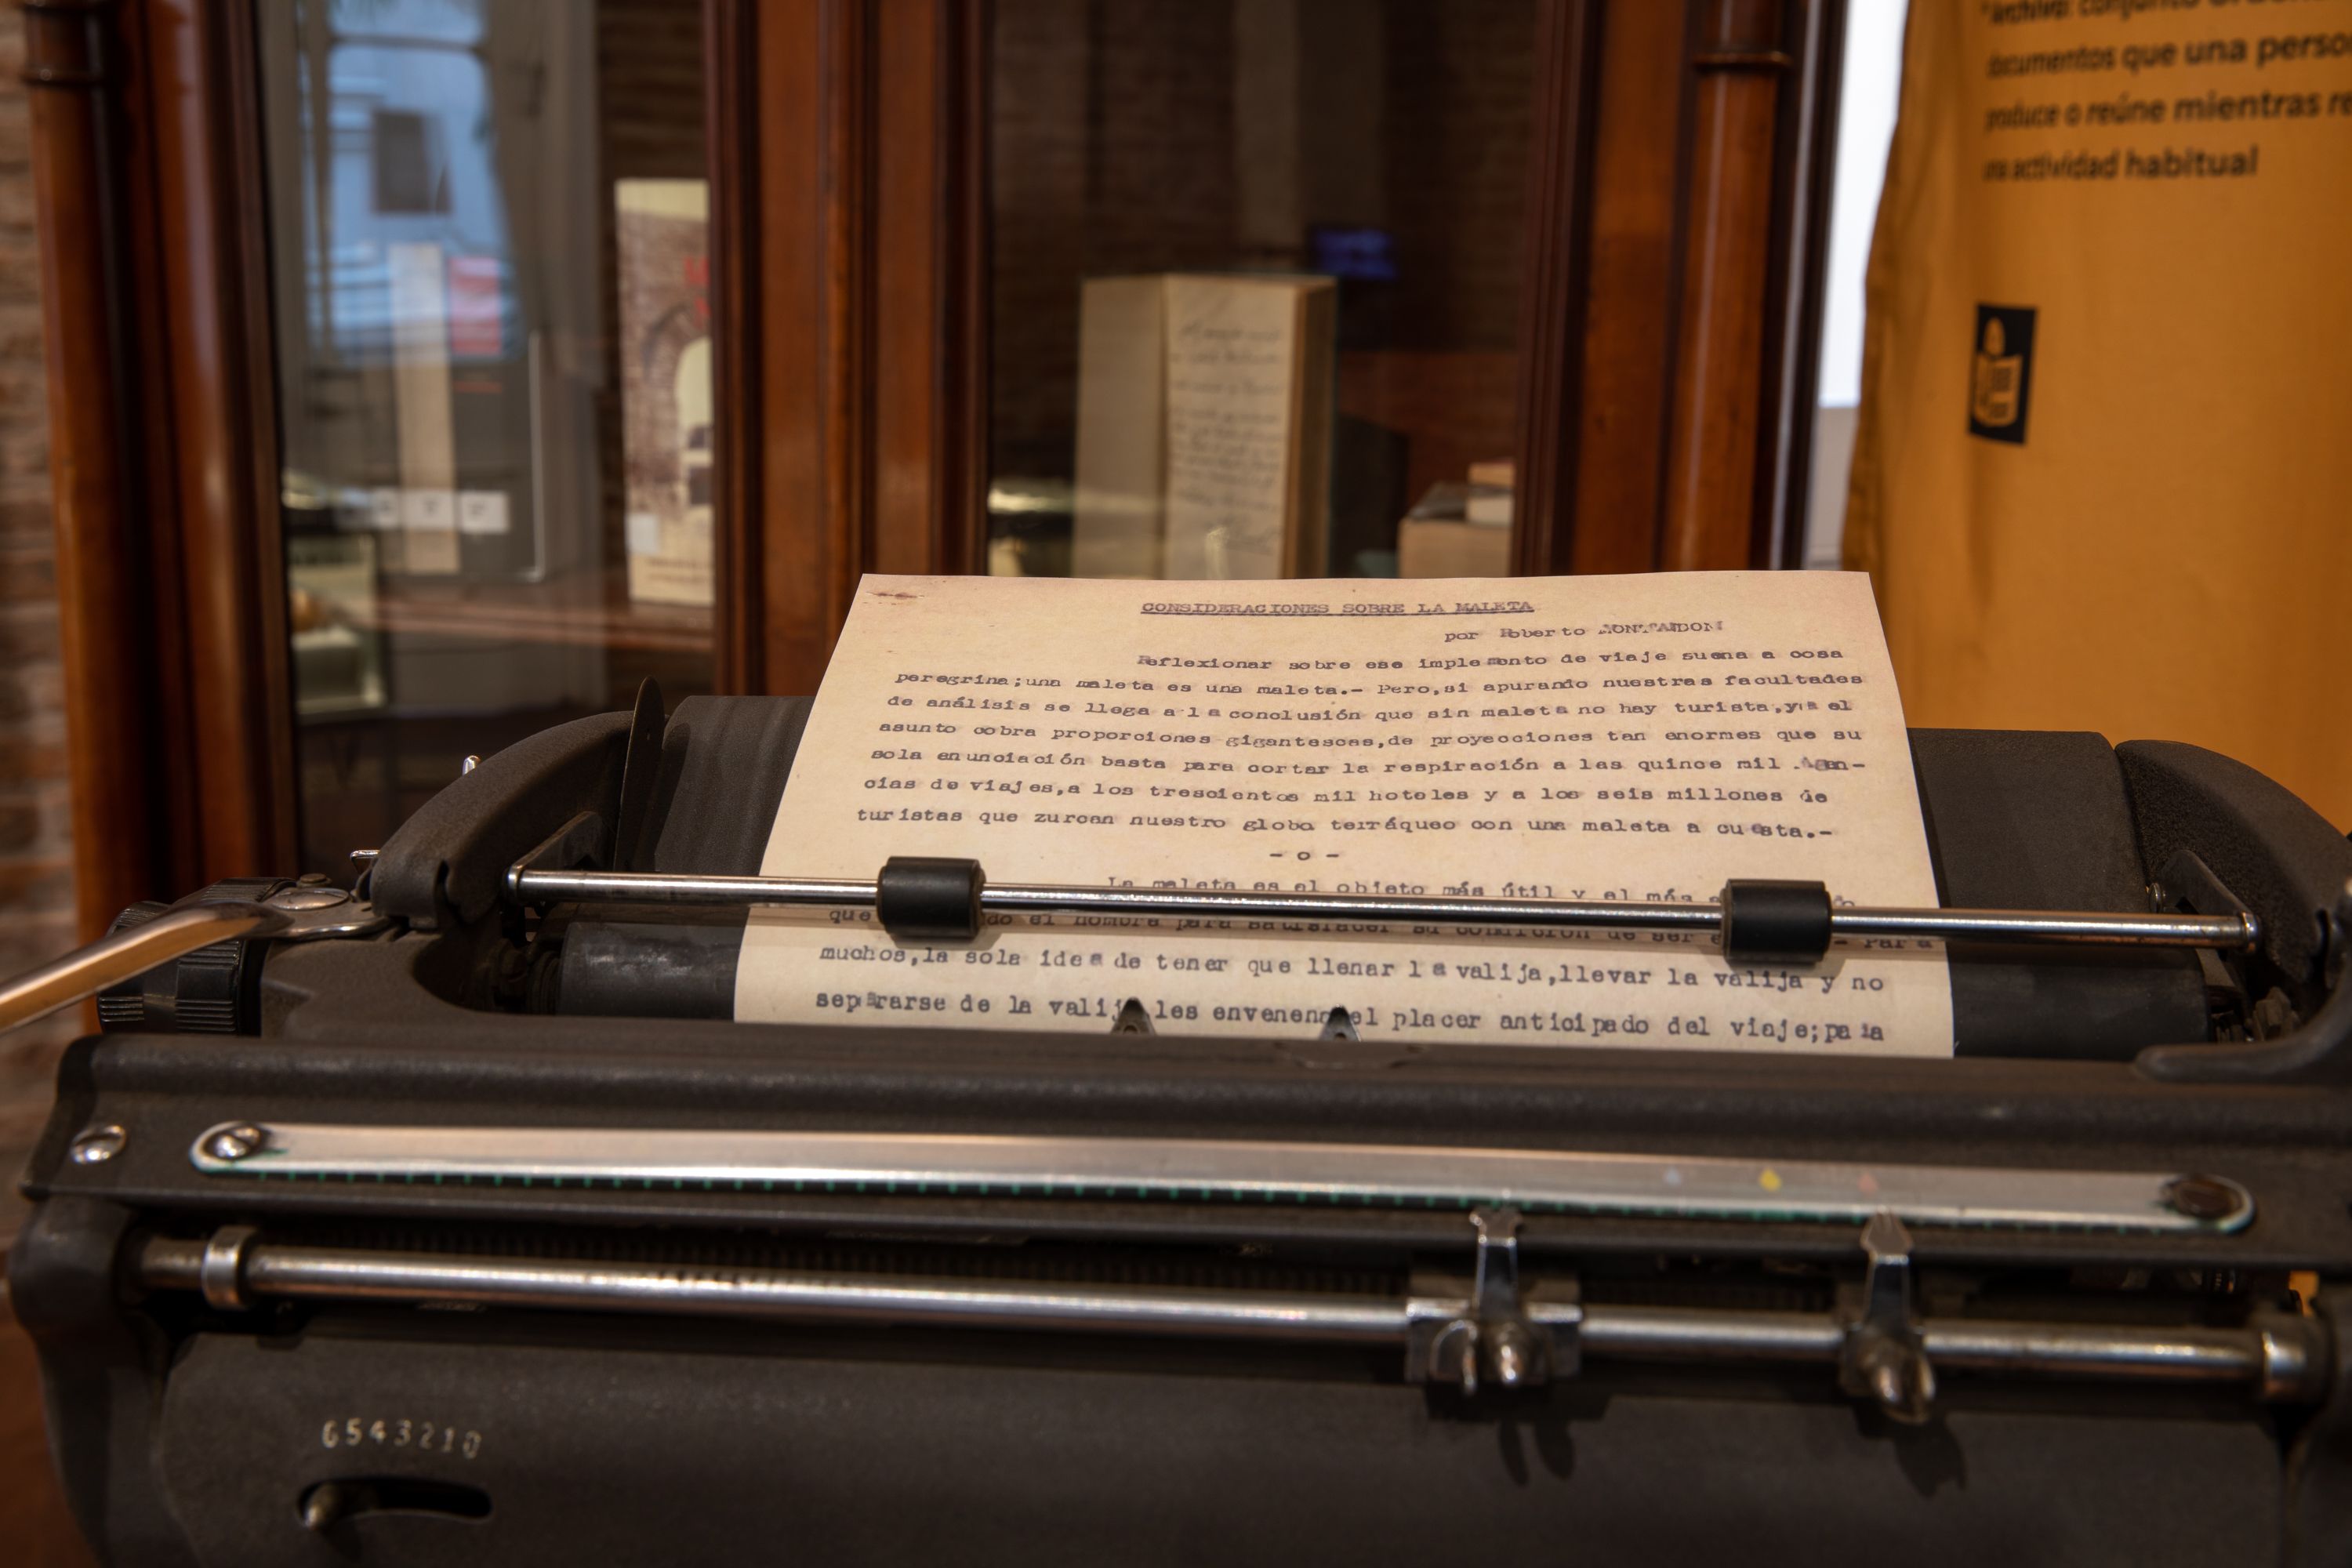 *Archivo: conjunto
documentos que una perso
produce o reúne mientras re
una actividad habitual
CONSIDERACIONES SOBRE LA MALETA
por Roberto MONTANDON
Reflexionar sobre ese implemento de viaje suena a cosa
peregrina;una maleta es una maleta.- Pero,si apurando nuestras facultades
de análisis se llega a la conclusión que sin maleta no hay turista,ya el
asunto cobra proporciones gigantescas,de proyecciones tan enormes que su
sola enunciación basta para cortar la respiración a las quince mil Agen-
cias de viajes,a los trescientos mil hoteles y a los seis millones de
turistas que zurcan nuestro globo terráqueo con una maleta a cuesta.-
- o -
La maleta es el objeto más útil y el más
que el hombre para satisfacer su condición de ser - Para
muchos,la sola idea de tener que llenar la valija,llevar la valija y no
separarse de la valija les envenena el placer anticipado del viaje;para
6543210